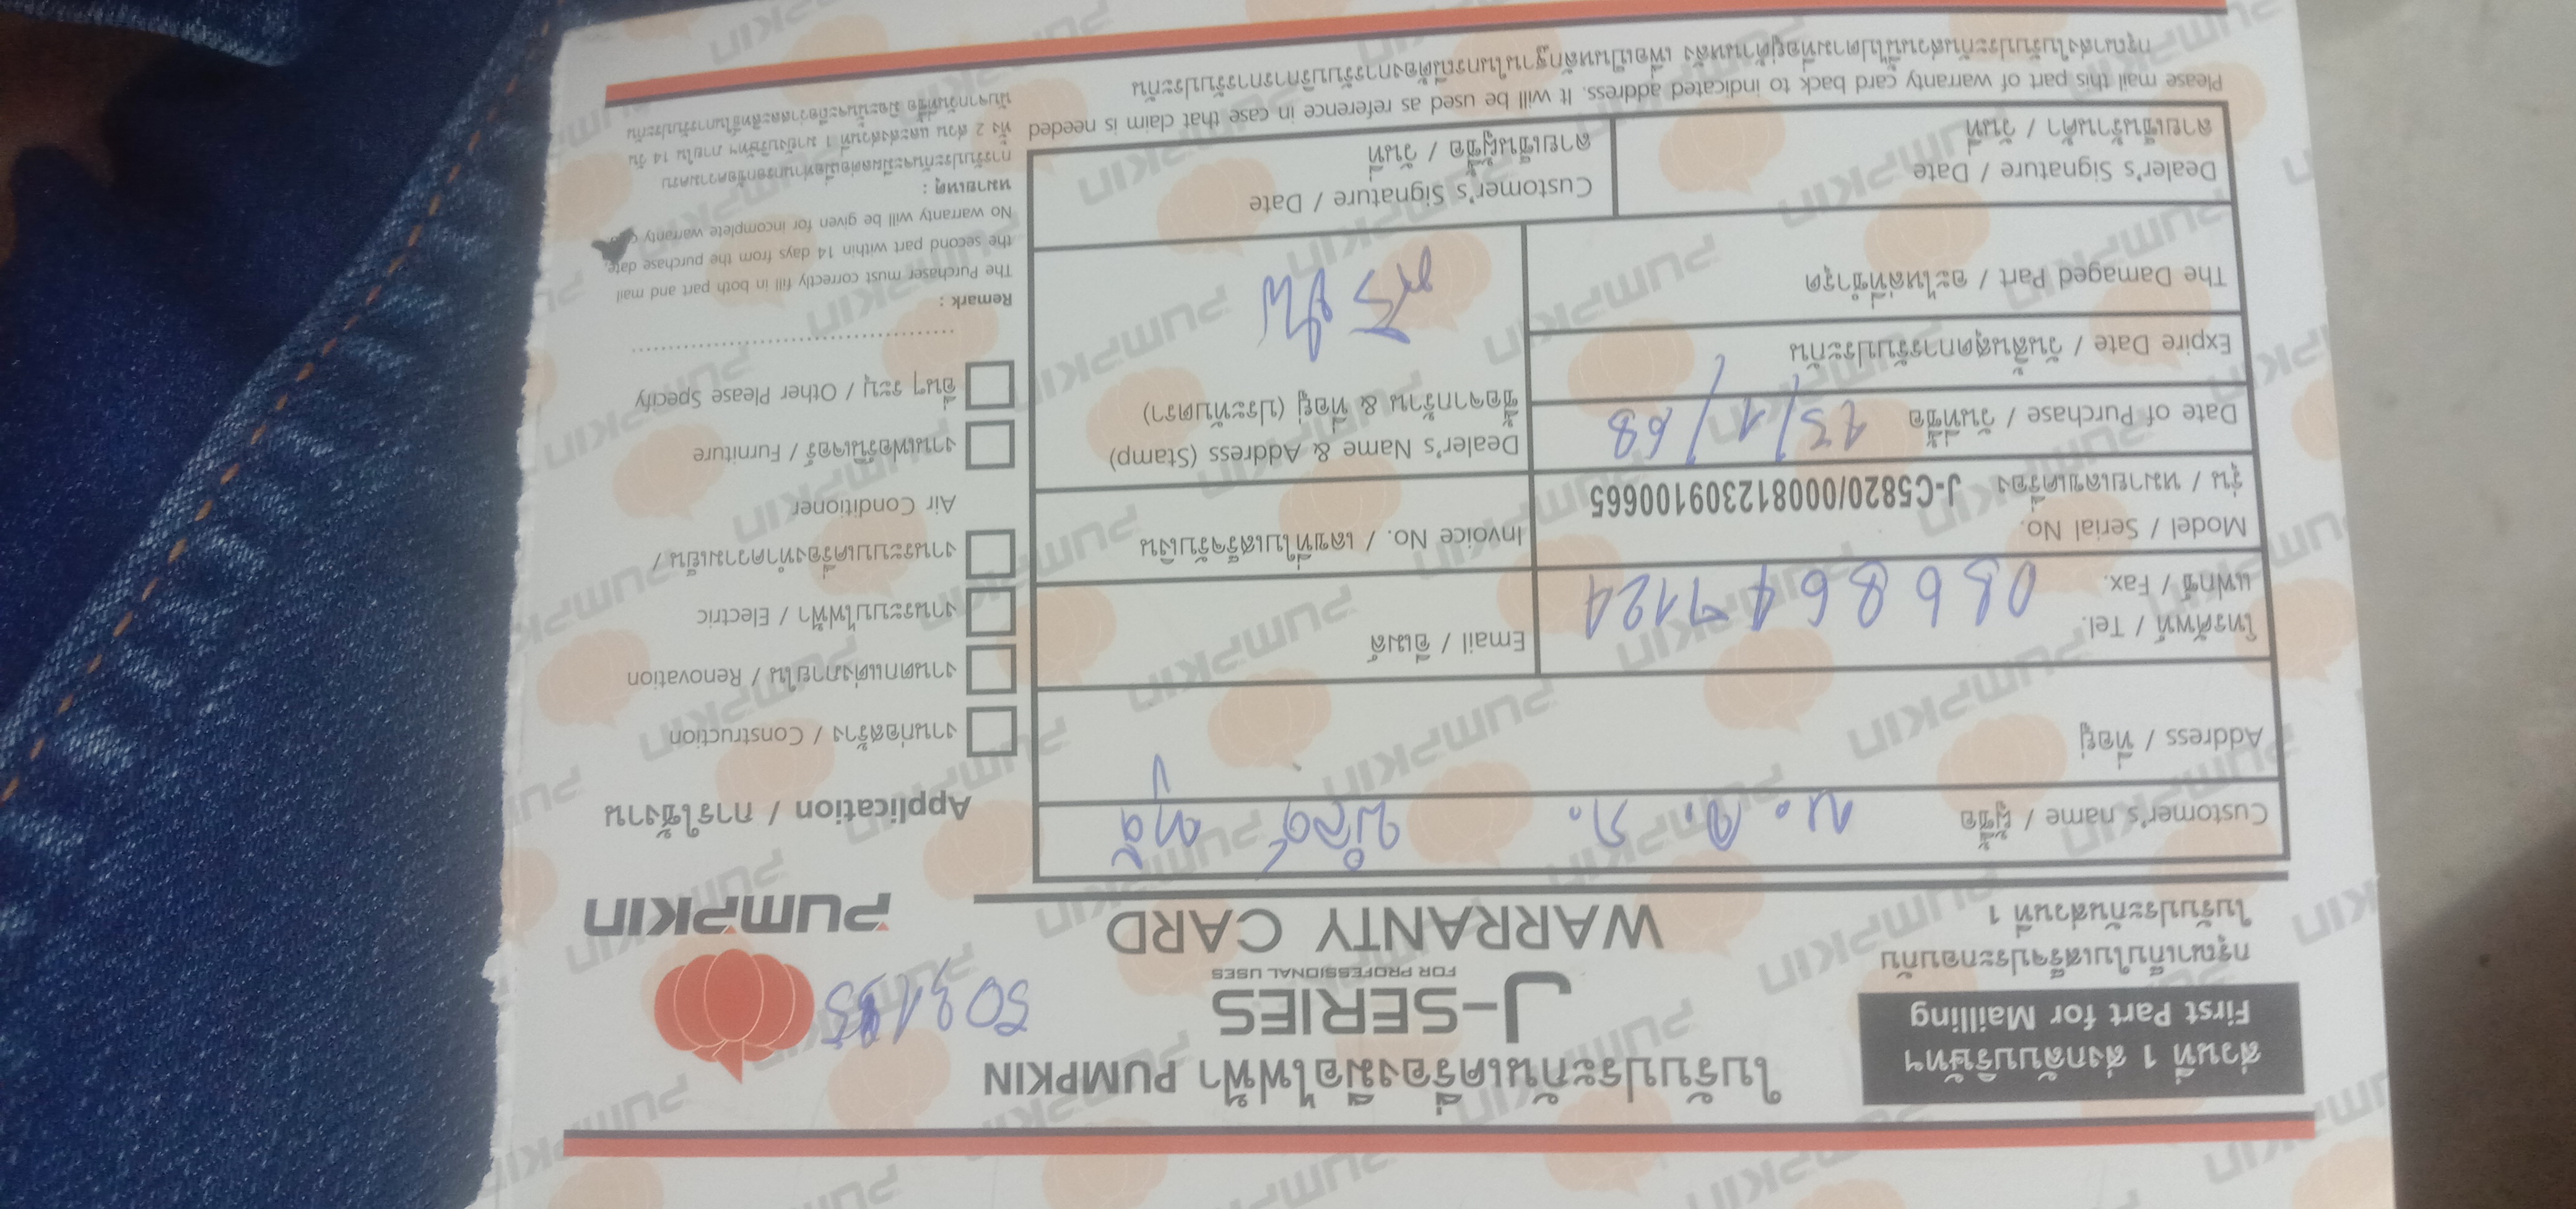 ส่วนที่ 1 ส่งกลับบริษัทฯ
First Part for Mailling
กรุณาเก็บใบเสร็จประกอบกับ
ใบรับประกันส่วนที่ 1
ใบรับประกันเครื่องมือไฟฟ้า PUMPKIN
J-SERIES
FOR PROFESSIONAL USES
WARRANTY CARD
PUMPKIN
Customer's name / ผู้ซื้อ
Address / ที่อยู่
โทรศัพท์ / Tel.
แฟกซ์ / Fax.
Email / อีเมล์
Model / Serial No.
รุ่น / หมายเลขเครื่อง J-C5820/000812309100665
Invoice No. / เลขที่ใบเสร็จรับเงิน
Date of Purchase / วันที่ซื้อ 13/1/68
Dealer's Name & Address (Stamp)
ชื่อจากร้าน & ที่อยู่ (ประทับตรา)
Expire Date / วันสิ้นสุดการรับประกัน
The Damaged Part / อะไหล่ที่ชำรุด
Dealer's Signature / Date
ลายเซ็นร้านค้า / วันที่
Customer's Signature / Date
ลายเซ็นผู้ซื้อ / วันที่
Please mail this part of warranty card back to indicated address. It will be used as reference in case that claim is needed
กรุณาส่งใบรับประกันส่วนนี้ไปตามที่อยู่ด้านหลัง เพื่อเป็นหลักฐานในกรณีต้องการรับบริการการรับประกัน
Application / การใช้งาน
งานก่อสร้าง / Construction
งานตกแต่งภายใน / Renovation
งานระบบไฟฟ้า / Electric
งานระบบเครื่องทำความเย็น /
Air Conditioner
งานเฟอร์นิเจอร์ / Furniture
อื่นๆ ระบุ / Other Please Specify
Remark :
The Purchaser must correctly fill in both part and mail
the second part within 14 days from the purchase date,
No warranty will be given for incomplete warranty
หมายเหตุ :
การรับประกันจะมีผลต่อเมื่อท่านกรอกข้อความครบ
ทั้ง 2 ส่วน และส่งส่วนที่ 1 มายังบริษัทฯ ภายใน 14 วัน
นับจากวันที่ซื้อ มิฉะนั้นจะถือว่าสละสิทธิ์ในการรับประกัน